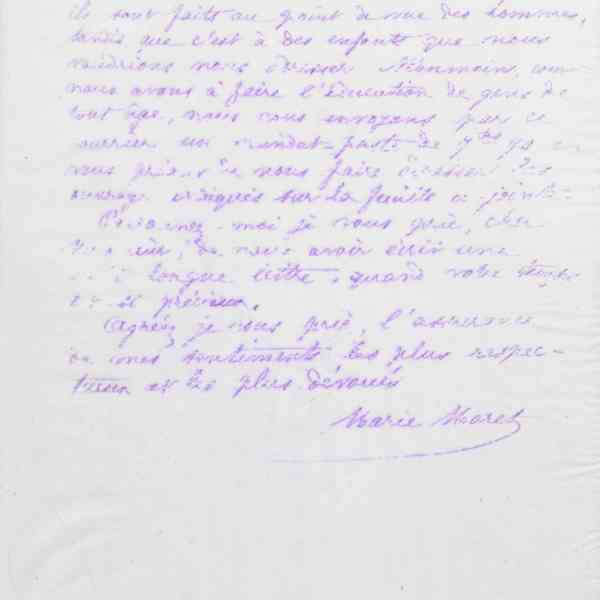 ils sont faits au point de vue des hommes,
tandis que c'est à des enfants que nous
voudrions nous adresser. Néanmoins, comme
nous avons à faire l'éducation de gens de
tout âge, nous vous envoyons par ce
courrier un mandat-poste de 7
vous priant de nous faire adresser les
ouvrages indiqués sur la feuille ci-jointe.
Pardonnez-moi je vous prie, cher
de vous avoir écrit une
si longue lettre, quand votre temps
est si précieux.
Agréez, je vous prie, l'assurance
de mes sentiments les plus respec-
tueux et les plus dévoués
Marie Moret